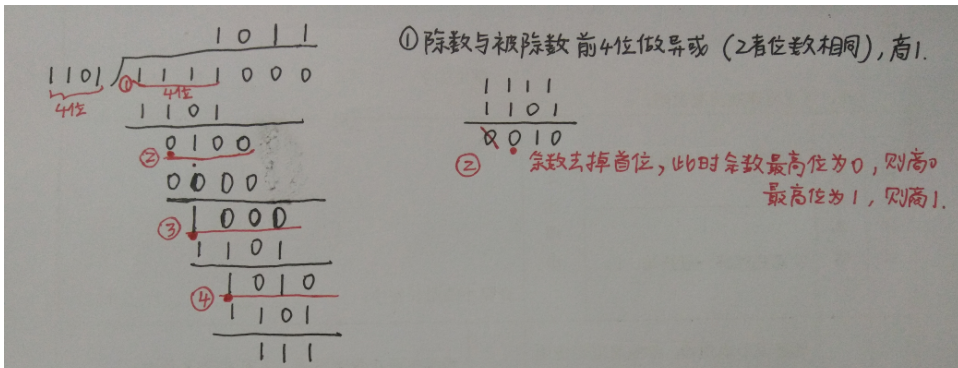 1 0 1 1
1101 1 1 1 1 0 0 0
4位 ① 4位
1 1 0 1
② 0 1 0 0
0 0 0 0
③ 1 0 0 0
1 1 0 1
④ 1 0 1 0
1 1 0 1
1 1 1
①除数与被除数前4位做异或(2者位数相同),商1.
1 1 1 1
1 1 0 1
0 0 1 0
② 余数去掉首位,此时余数最高位为0,则商0
最高位为1,则商1.